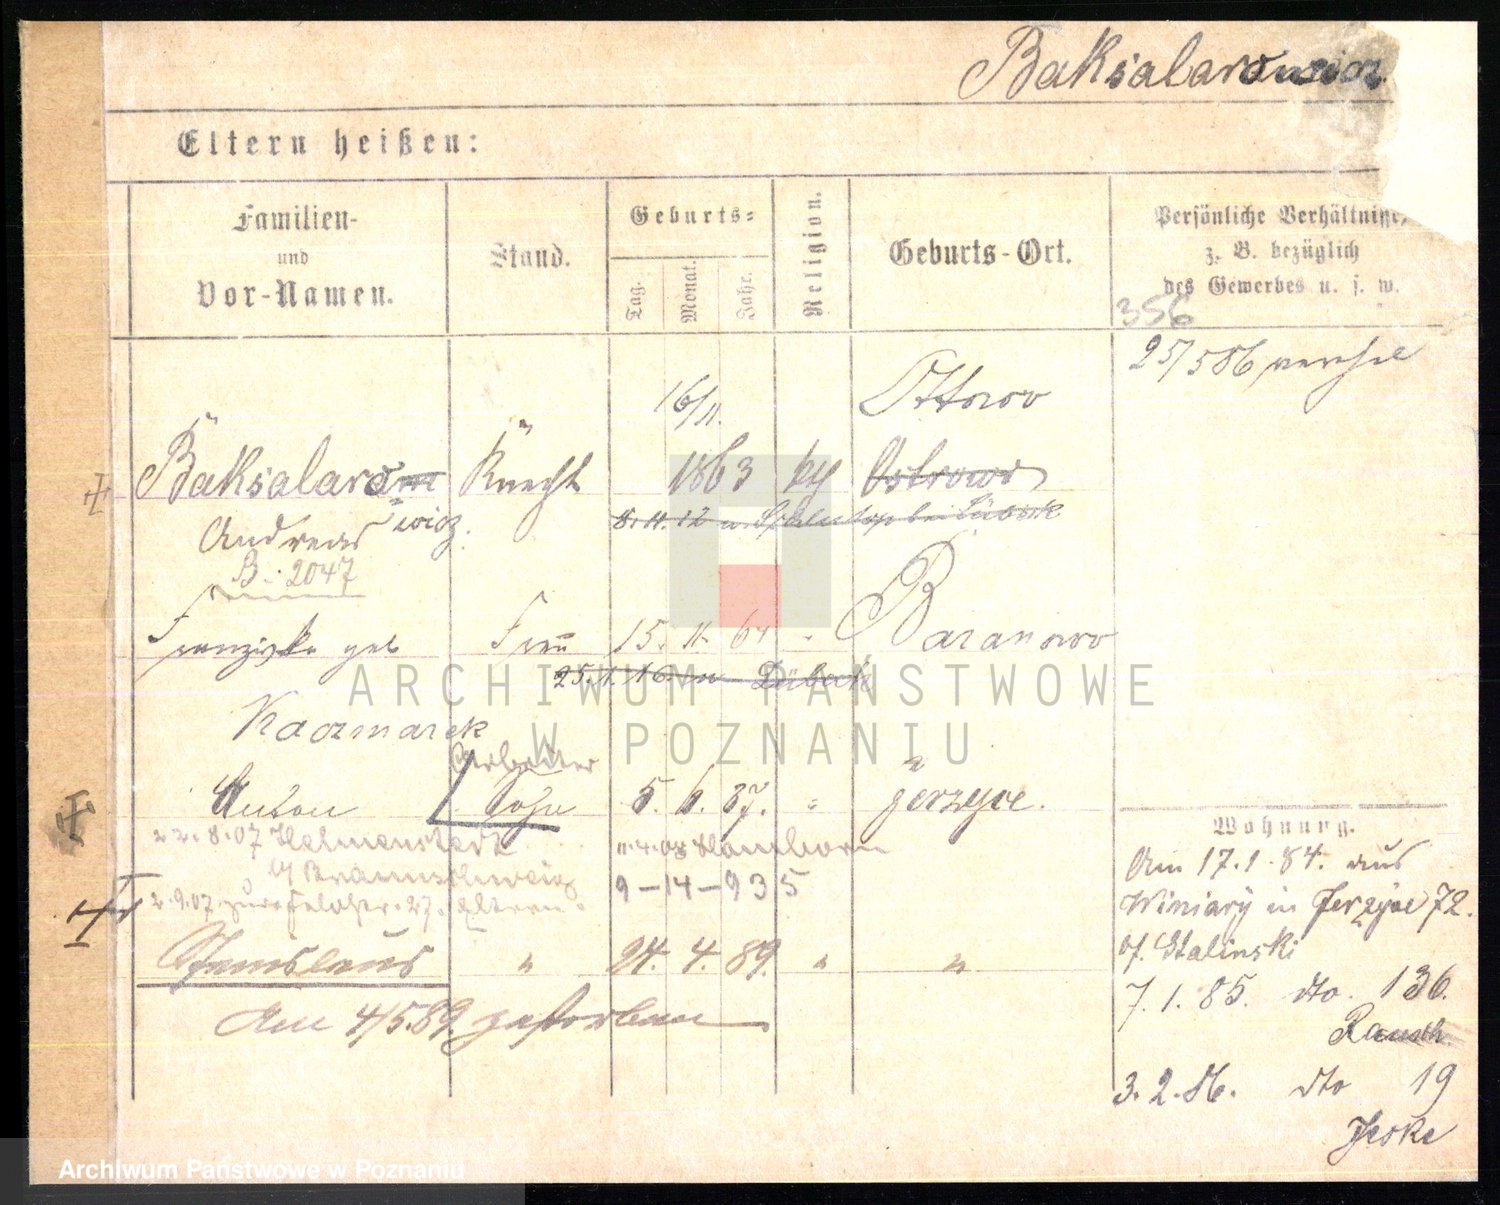 Baksalarowicz
Eltern heißen:
Familien-
und
Vor-Namen.
Stand.
Geburts-
Tag.
Monat.
Jahr.
Religion.
Geburts-Ort.
Persönliche Verhältnisse,
z. B. bezüglich
des Gewerbes u. s. w.
356
25/586
16/11. Ottowo
Baksalarow Knecht 1863 kth Ostrowo
Andreas wicz.
8.11.12 Lübeck
B. 2047
Franziska geb Frau 15. 11. 64 " Baranowo
25.1.16 Lübeck
Kaczmarek
Arbeiter
Anton Sohn 5. 6. 87. " Jerzyce.
22.8.07 Helmenstedt
Braunschweig
9-14-935
2.9.07 Eltern
Stanislaus " 24. 4. 89. " "
Am 4/5.89. gestorben
Wohnung.
Am 17.1.84. aus
Winiary in Jerzyce 72.
b/. Stalinski
7.1.85. dto. 136.
Rauch.
3.2.86. dto 19
Jeske
ARCHIWUM PAŃSTWOWE
W POZNANIU
Archiwum Państwowe w Poznaniu